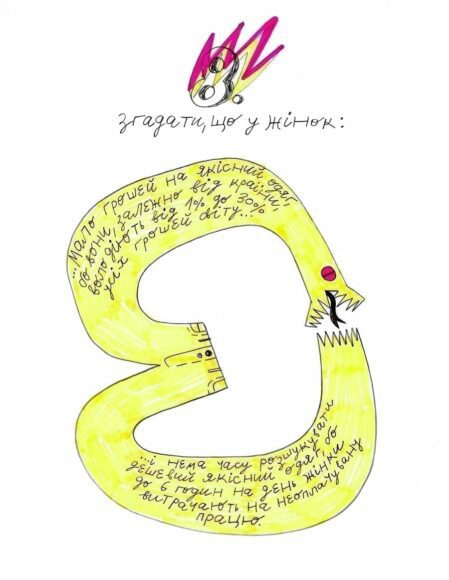 3.
згадати, що у жінок:
...Мало грошей на якісний одяг,
бо вони, залежно від країни,
володіють від 1% до 30%
усіх грошей світу...
...і нема часу розшукувати
дешевий якісний одяг, бо
до 6 годин на день жінки
витрачають на неоплачувану
працю.